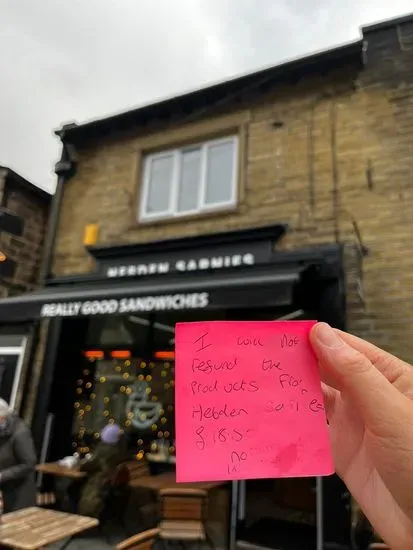 HEBDEN SARNIES
REALLY GOOD SANDWICHES
I will Not
refund the
Products From
Hebden
no